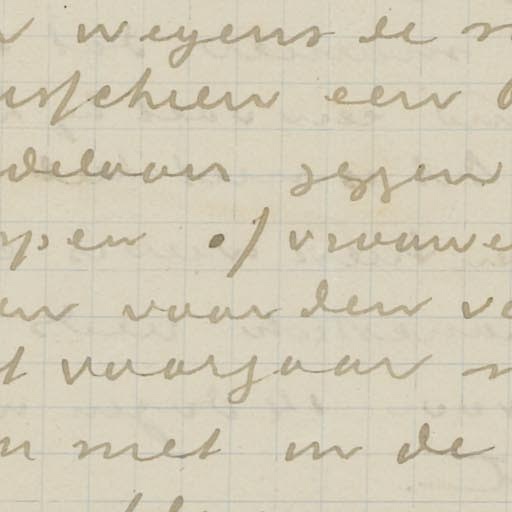 wegens de
isschien een
delaar zeggen
pen of vrouwe
en voor den vo
t voorjaar
n met in de